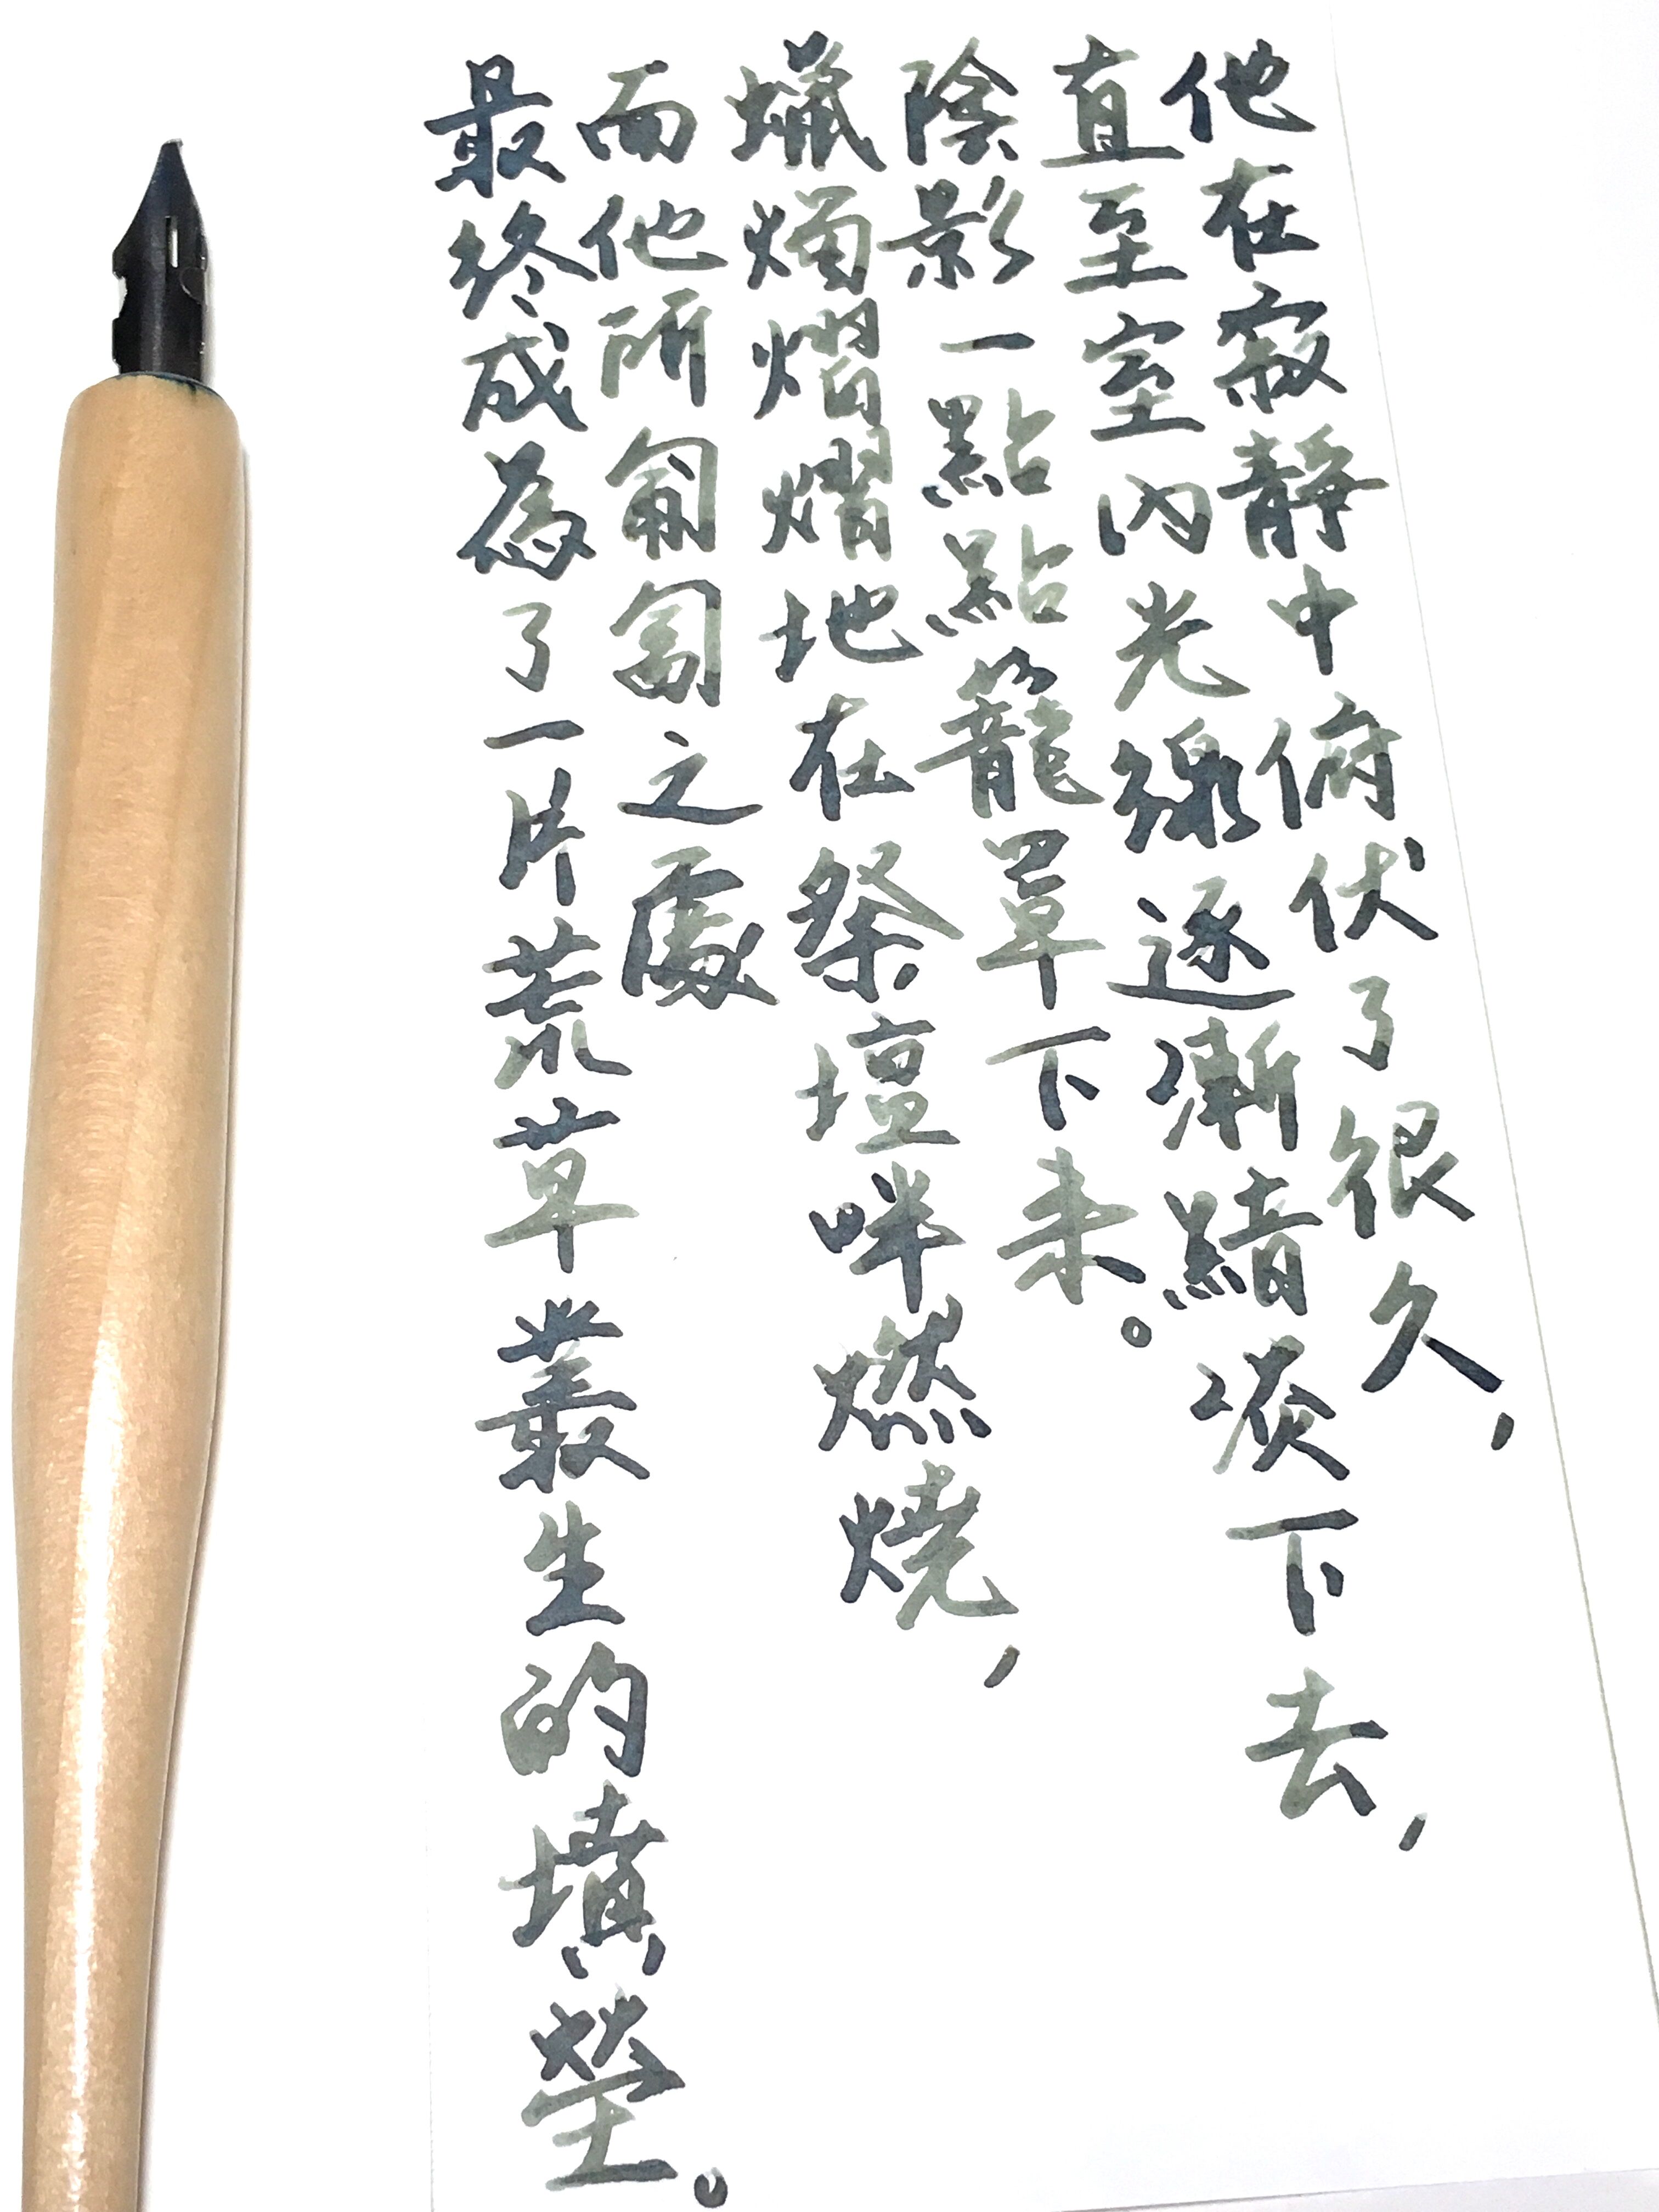 他在寂靜中俯伏了很久，
直至室內光線逐漸黯淡下去，
陰影一點點籠罩下來。
蠟燭熠熠地在祭壇畔燃燒，
而他所匍匐之處
最終成為了一片荒草叢生的墳塋。